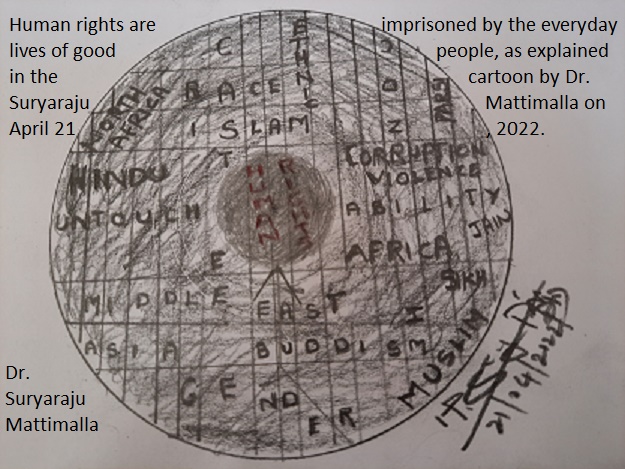 Human rights are imprisoned by the everyday
lives of good people, as explained
in the cartoon by Dr.
Suryaraju Mattimalla on
April 21, 2022.
ETHNIC
NORTH
AFRICA
RACE
ISLAM
HUMAN
RIGHTS
CORRUPTION
VIOLENCE
HINDU
UNTOUCH
ABILITY
JAIN
AFRICA
SIKH
MIDDLE EAST
ASIA BUDDISM
MUSLIM
GENDER
21/04/2022
Dr.
Suryaraju
Mattimalla